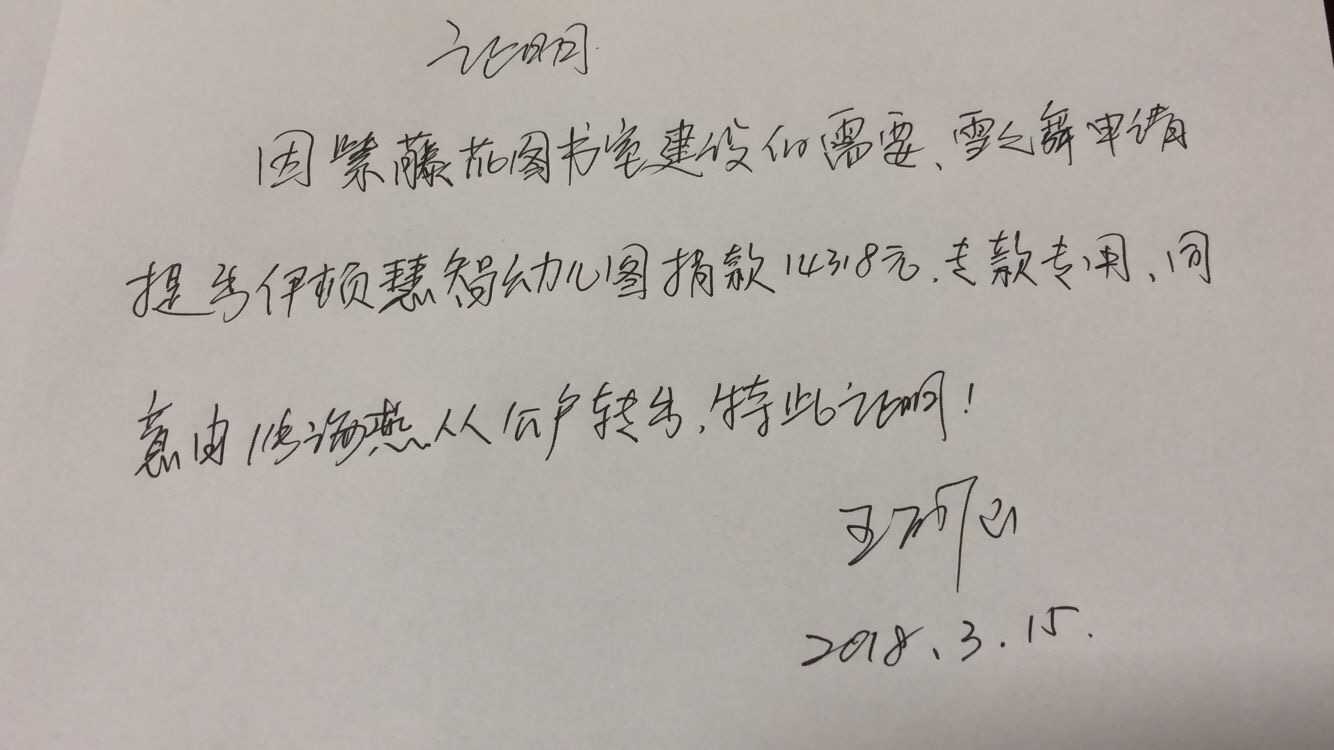 证明
因紫藤花图书室建设的需要、雪之舞申请
提出伊顿慧智幼儿园捐款14318元.专款专用、同
意由 海燕从公户转出,特此证明!
王
2018.3.15.